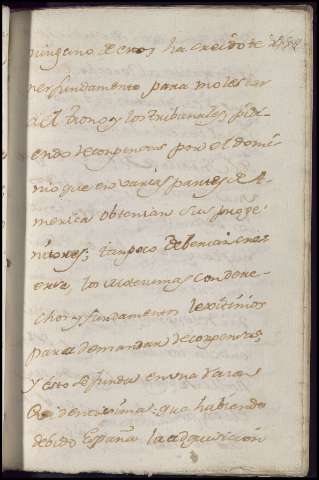 ninguno de enos ha creido te
ner fundamento para molestar
al trono y los tribunales pidi
endo recompensas por el domi
nio que en varias partes de A
merica obtenian sus proge
nitores; tampoco deberian cre
erse, los Academas con dere
chos y fundamentos lexitimos
para demandar recompensas,
y esto se funda en una razon
evidentisima: que habiendo
debido España la adquisicion